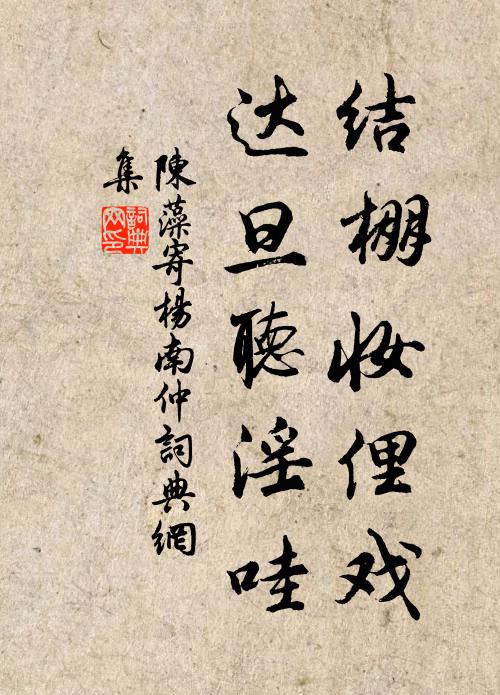 结棚妆俚戏
达旦聽淫哇
陳藻寄楊南仲詞典網
集
詞典
网印